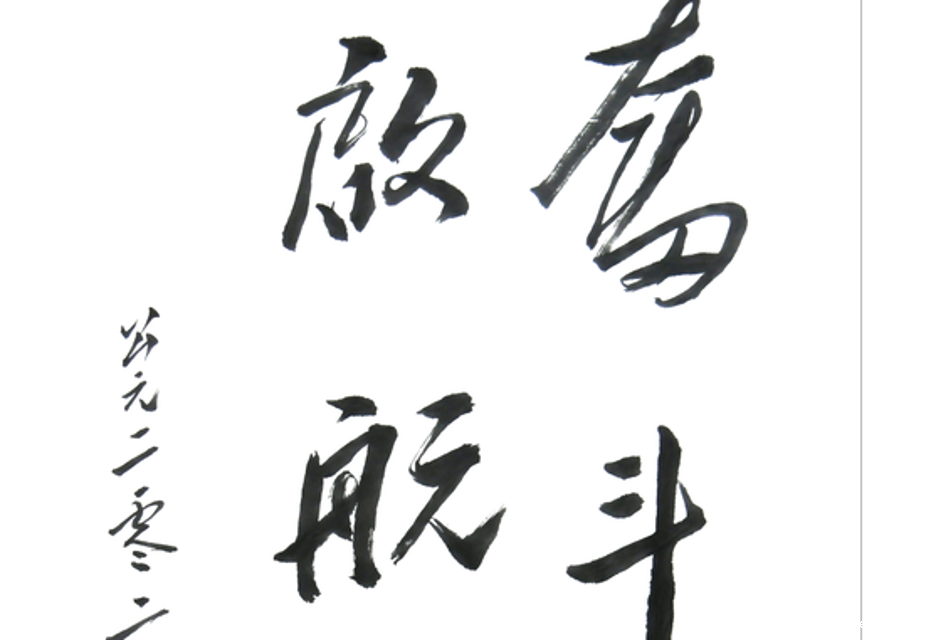 奮斗
啟航
公元二零二